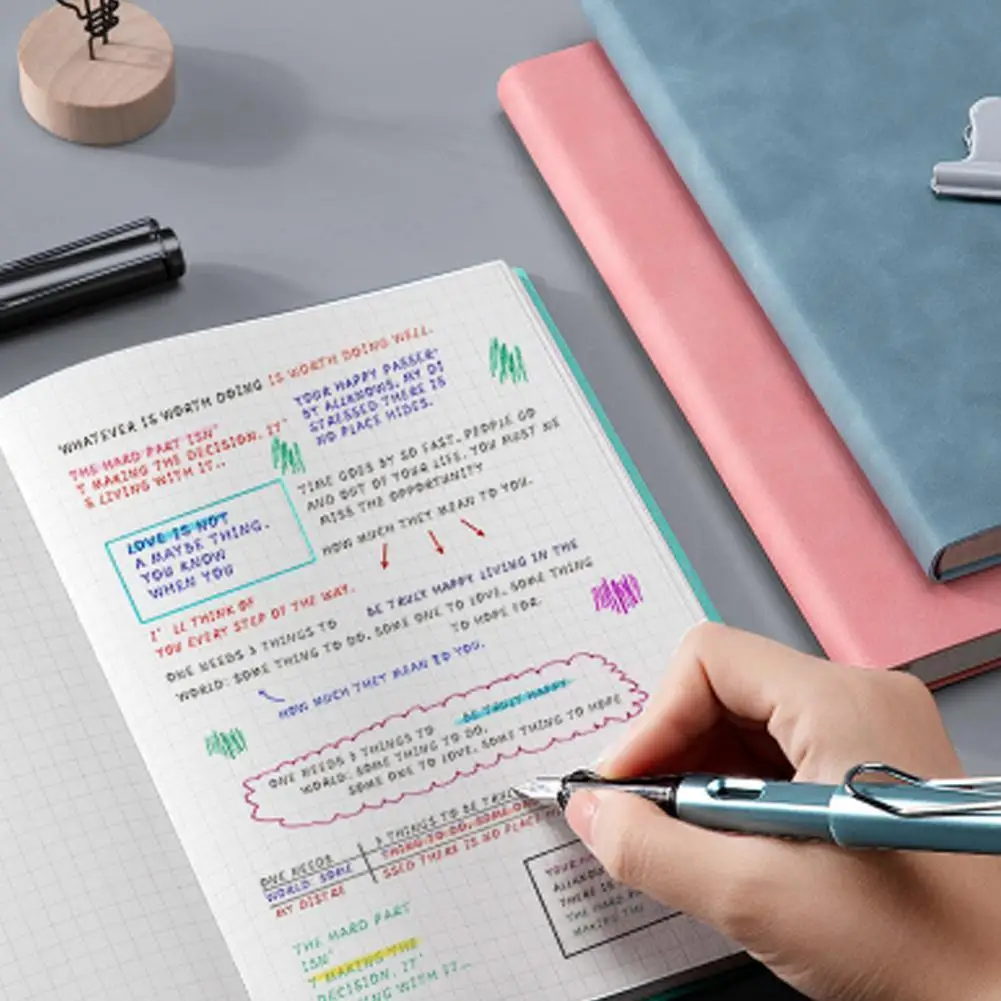 WHATEVER IS WORTH DOING IS WORTH DOING WELL.
THE HARD PART ISN'
T MAKING THE DECISION. IT'
S LIVING WITH IT..
YOUR HAPPY PASSER'
BY ALLKNOWS, MY DI
STRESSED THERE IS
NO PLACE HIDES.
TIME GOES BY SO FAST, PEOPLE GO
AND OUT OF YOUR LIFE. YOU MUST NE
MISS THE OPPORTUNITY
HOW MUCH THEY MEAN TO YOU.
LOVE IS NOT
A MAYBE THING.
YOU KNOW
WHEN YOU
I' LL THINK OF
YOU EVERY STEP OF THE WAY.
BE TRULY HAPPY LIVING IN THE
ONE NEEDS 3 THINGS TO
WORLD: SOME THING TO DO, SOME ONE TO LOVE, SOME THING
TO HOPE FOR.
HOW MUCH THEY MEAN TO YOU.
ONE NEEDS 3 THINGS TO BE TRULY HAPPY
WORLD: SOME THING TO DO,
SOME ONE TO LOVE, SOME THING TO HOPE
3 THINGS TO BE TRULY
ONE NEEDS THING TO DO, SOME ON
WORLD: SOME SSED THERE IS NO PLACE
MY DISTRE
YOUR
ALLKNOWS
THERE IS
THE HARD
MAKING THE
THE HARD PART
ISN'
T MAKING THE
DECISION. IT'
WITH IT..